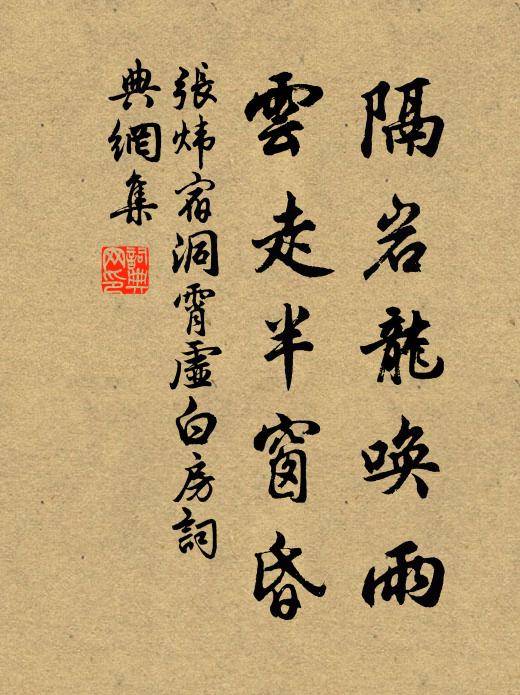 隔岩龍喚雨
雲走半窗昏
張煒宿洞霄虛白房詞
典網集
詞典
网印